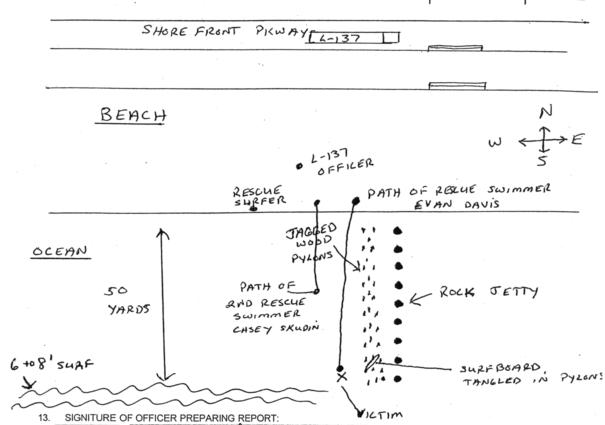 SHORE FRONT PKWAY
L-137
BEACH
N
W
E
S
L-137
OFFICER
RESCUE
SURFER
PATH OF RESCUE SWIMMER
EVAN DAVIS
JAGGED
WOOD
PYLONS
OCEAN
50
YARDS
PATH OF
2ND RESCUE
SWIMMER
CASEY SKUDIN
ROCK JETTY
6 to 8' SURF
SURFBOARD
TANGLED IN PYLONS
X
VICTIM
13. SIGNITURE OF OFFICER PREPARING REPORT: